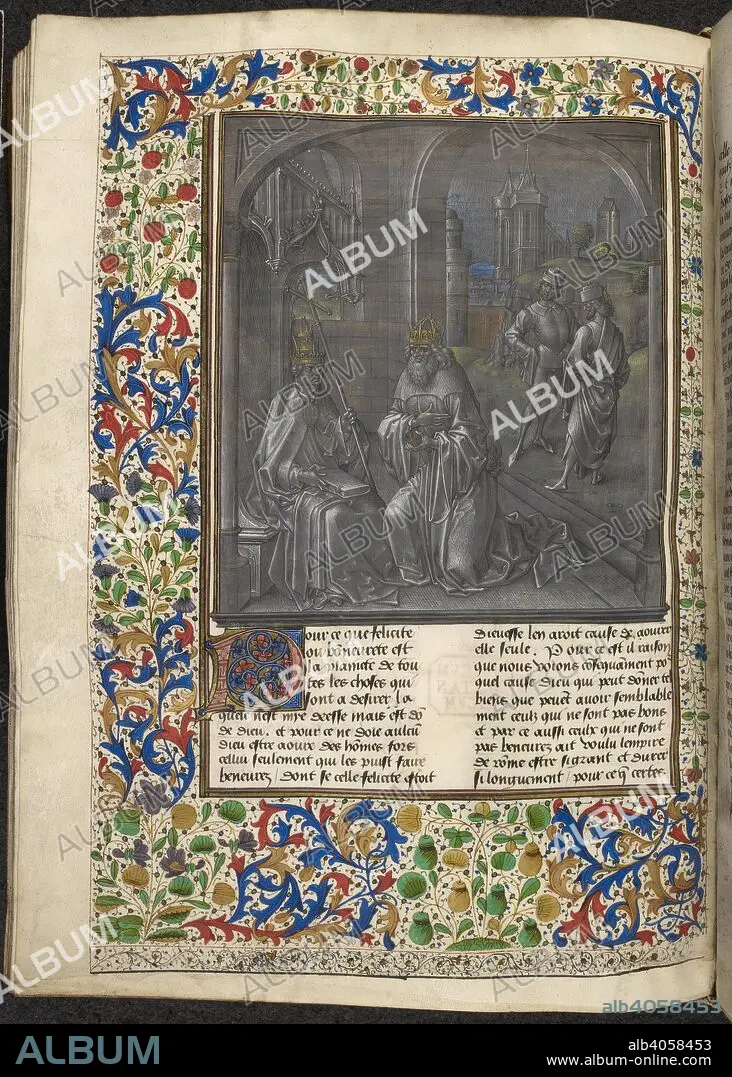 Pour ce que felicite
ou boneurete est
la planite de tou
tes les choses qui
sont a desirer la
quele nest mye deesse mais est dō
de dieu . et pour ce ne doie aulcū
dieu estre aoure des hōmes fors
cellui seulement qui les puist faire
beneurez / dont se celle felicite estoit
dieuesse len aroit cause de aourer
elle seule . Pour ce est il raison
que nous voions cōsequāment po
quel cause dieu qui peut donner les
biens que peuēt auoir semblable
ment ceulx qui ne sont pas bons
et par ce aussi ceulx qui ne sont
pas beneurez ait voulu lempire
de rōme estre si grant et durer
si longuement / pour ce q̄ certes
ALBUM
alb4058453
ALBUM
alb4058453
www.album-online.com